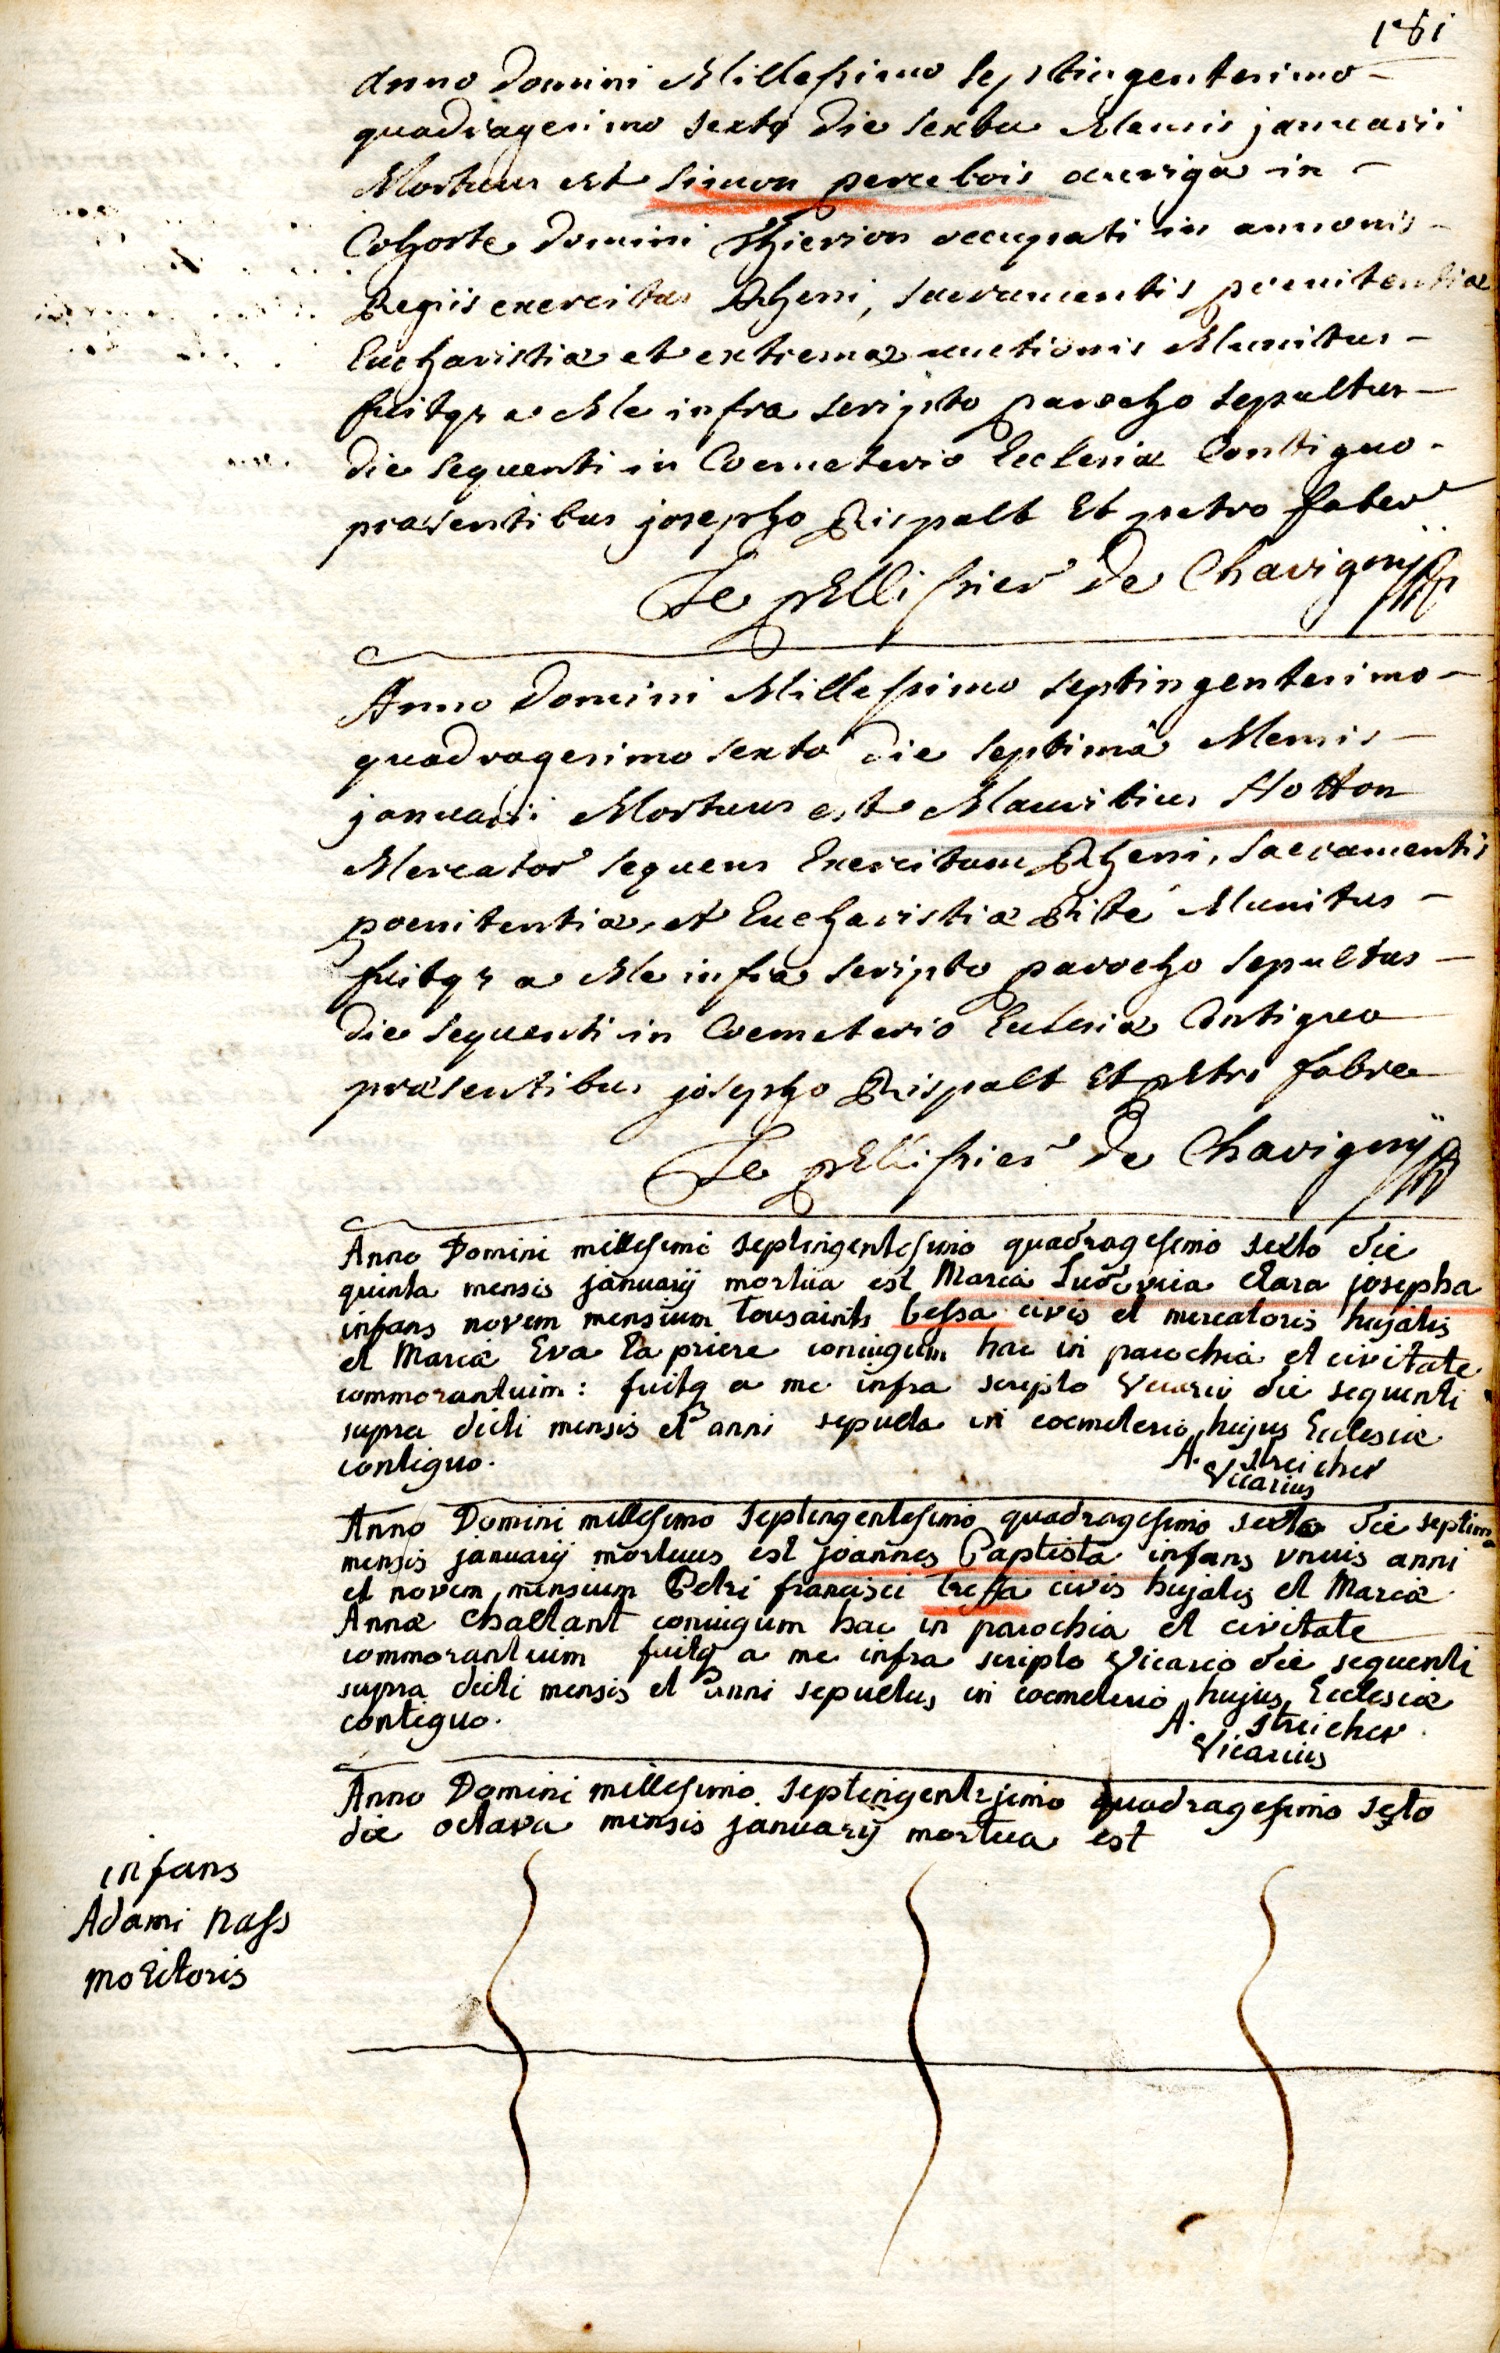 161
Anno Domini Millesimo Septingentesimo
quadragesimo sexto die sexta Mensis januarii
Mortuus est Simon percebois auriga in
Cohorte Domini Thierion occupati in annonis
Regiis exercitus Rheni, sacramentis poenitentiæ
Eucharistiæ et extremæ unctionis Munitus
fuitqs a Me infra scripto parocho sepultus
die sequenti in Coemeterio Ecclesiæ Contiguo
præsentibus josepho Rispalt Et petro faber
Le pellissier de Chavignÿ
Anno Domini Millesimo septingentesimo
quadragesimo sexto die septimâ Mensis
januarii Mortuus est Mauritius Hotton
Mercator sequens Exercitum Rheni, sacramentis
poenitentiæ, et Eucharistiæ Rite Munitus
fuitqs a Me infra scripto parocho sepultus
die sequenti in Coemeterio Eclesiæ Contiguo
præsentibus josepho Rispalt Et petro fabre
Le pellissier de Chavignÿ
Anno Domini millesimo septingentesimo quadragesimo sexto die
quinta mensis januarij mortua est Maria Ludovica Clara josepha
infans novem mensium Tousaints bessa civis et mercatoris hujatis
et Mariæ Eva la priere coniugum hac in parochia et civitate
commorantium: fuitq a me infra scripto Vicario die sequenti
supra dicti mensis et anni sepulta in coemeterio hujus Eclesiæ
contiguo.
A. Streicher
Vicarius
Anno Domini millesimo septingentesimo quadragesimo sexto die septima
mensis januarij mortuus est joannes Baptista infans vnius anni
et novem mensium Petri francisci tressa civis hujatis et Mariæ
Annæ Challant coniugum hac in parochia et civitate
commorantium fuitq a me infra scripto Vicario die sequenti
supra dicti mensis et anni sepultus in coemeterio hujus Eclesiæ
contiguo.
A. Streicher
Vicarius
Anno Domini millesimo septingentesimo quadragesimo sexto
die octava mensis januarij mortua est
infans
Adami nass
molitoris